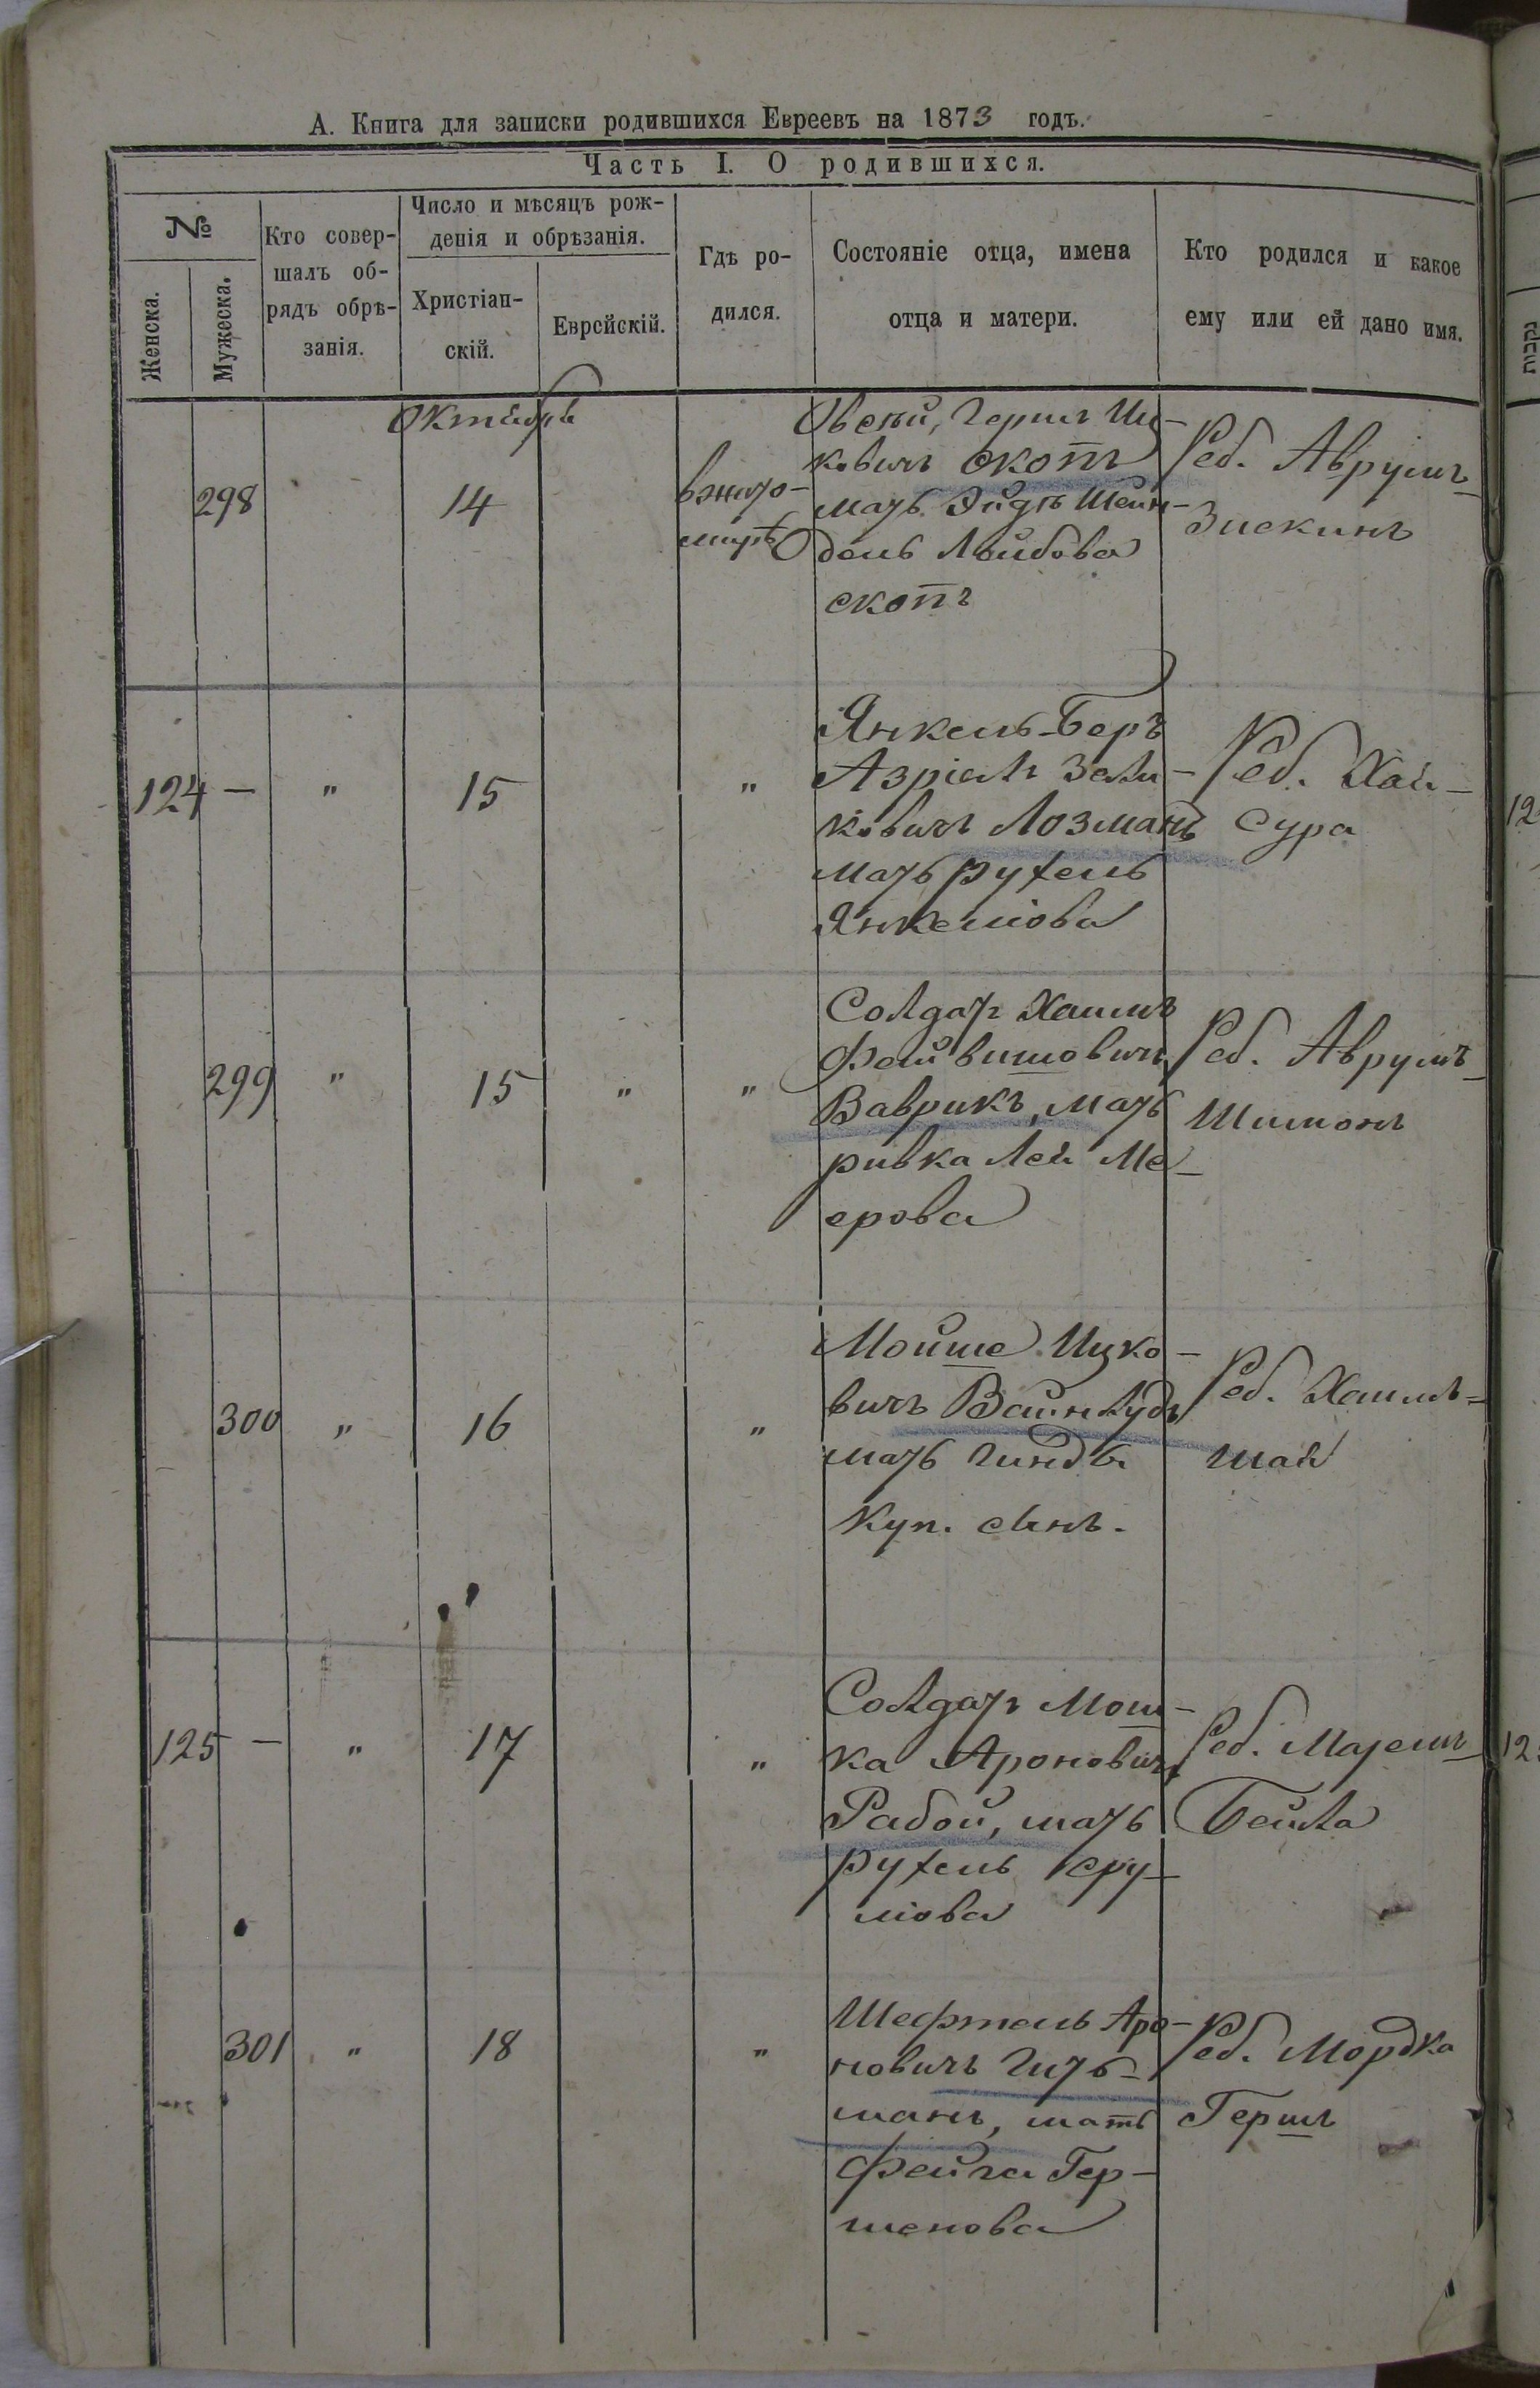 А. Книга для записки родившихся Евреевъ на 1873 годъ.
Часть I. О родившихся.
№
Женска.
Мужеска.
Кто совер-
шалъ об-
рядъ обрѣ-
занія.
Число и мѣсяцъ рож-
денія и обрѣзанія.
Христіан-
скій.
Еврейскій.
Гдѣ ро-
дился.
Состояніе отца, имена
отца и матери.
Кто родился и какое
ему или ей дано имя.
נקבות
Октября
298
14
въжито-
мирѣ
Овсѣй, Гершъ Иц-
ковичъ Скотъ
мать Эйдя Шейн-
дель Лейбова
скотъ
Реб. Аврумъ
Зискинъ
124 — " 15 "
Янкель-Беръ
Азріелъ Зели-
ковичъ Лозманъ
мать Рухель
Янкеліова
Реб. Хая-
Сура
12
299 " 15 " "
Солдатъ Хаимъ
Фейвишовичъ
Ваврикъ, мать
ривка Лея Ме-
ерова
Реб. Аврумъ
Шимонъ
300 " 16 "
Мойше Ицко-
вичъ Вайнлудъ
мать Гинда
Куп. сынъ.
Реб. Хаимъ-
шая
125 — " 17 "
Солдатъ Мош-
ка Ароновичъ
Рабой, мать
рухель сру-
ліова
Реб.
Бейла
12
301 " 18 "
Шефтель Аро-
новичъ Гить-
манъ, мать
Фейга Гер-
шенова
Реб. Мордка
Гершъ